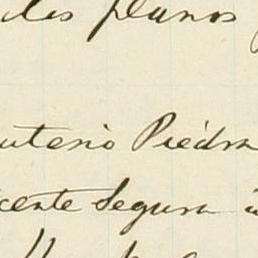 les planos
uterio Piedra
cente Segura